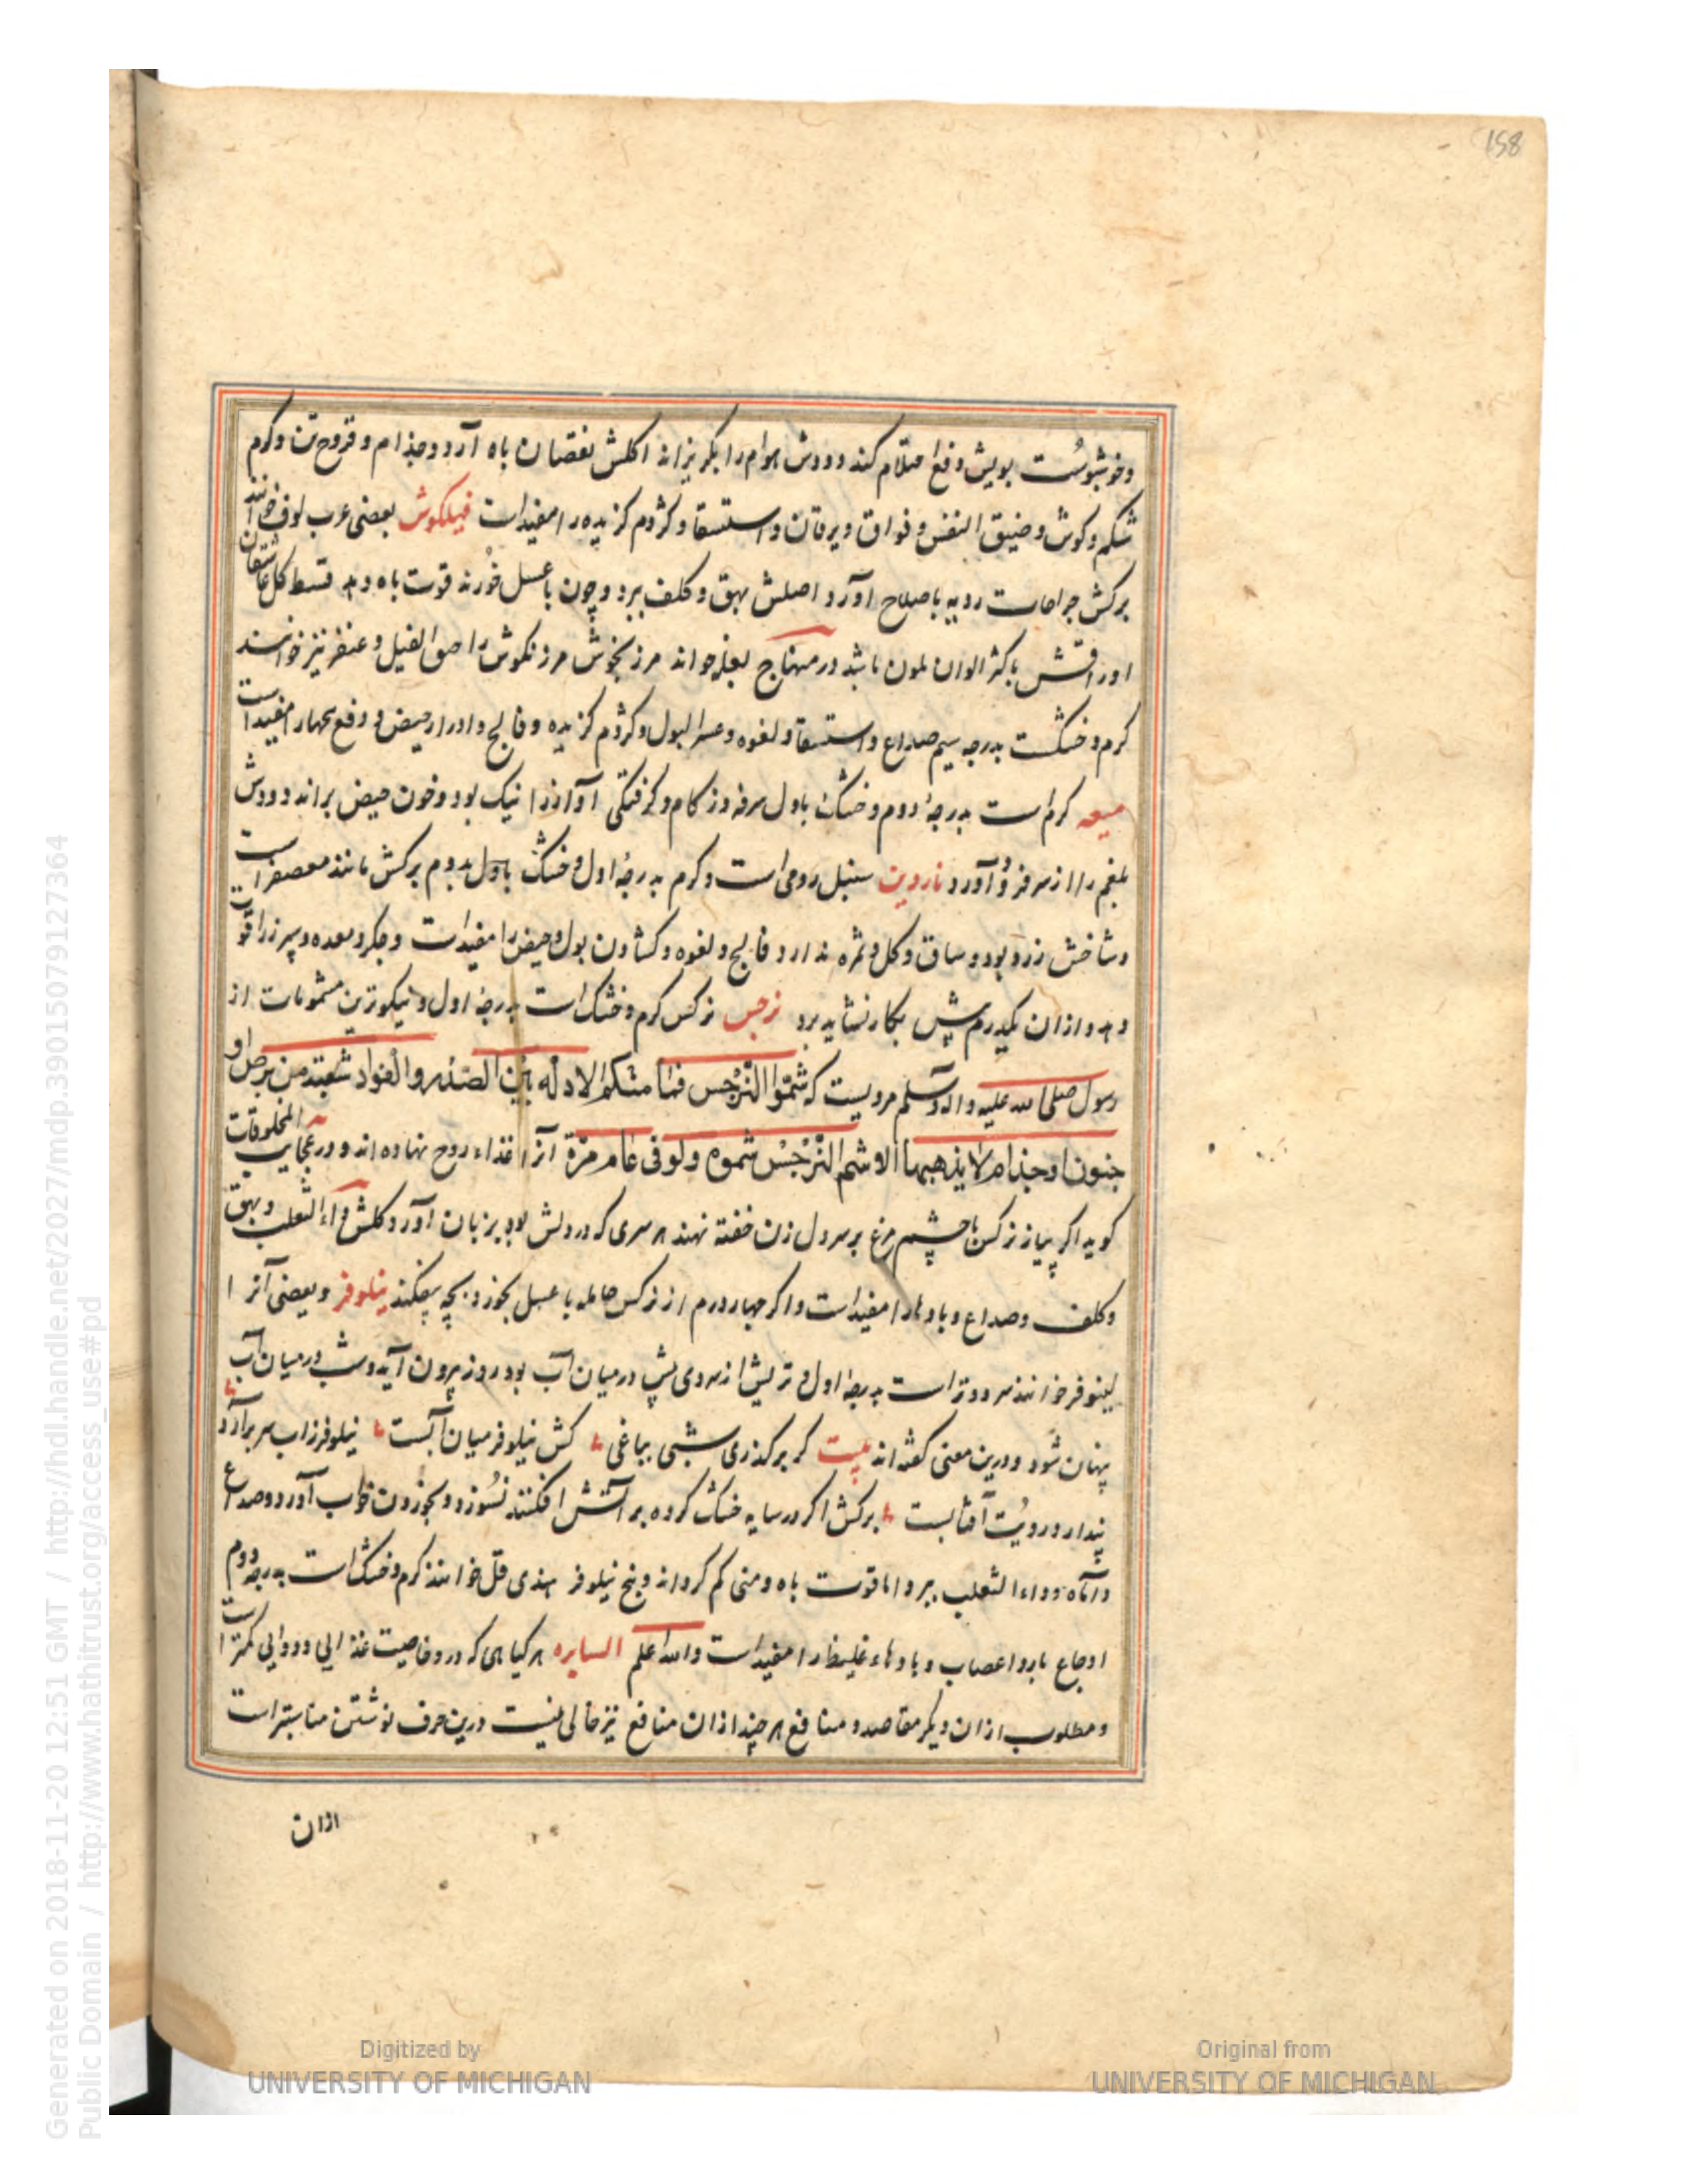 158
وخوشبوست بویش دفع احتلام کند و دودش هوام را بگریزاند اکلش نقصان باه آرد و جذام و قروح تن و کرم
شکم و کوش و ضیق النفس و فواق و یرقان و استسقا و کژدم کزیده را مفیدات فیلکوش بعضی عرب لوف خوانند
برکش جراحات ردیه باصلاح آورد اصلش بهق و کلف ببرد و چون با عسل خورند قوت باه دهد قسط کل عاشقان
اوراقش باکثر الوان ملون باشد در منهاج خواند مرزنجوش مرزنکوش را حبق الفیل و عنقر نیز خوانند
کرم و خشکست بدرجه سیم صداع و استسقا و لقوه و عسر البول و کژدم کزیده و فالج و ادرار حیض و دفع بخار را مفیدات
میعه کرم است بدرجهٔ دوم و خشک باول سرفه و زکام و کرفتکی آواز را نیک بود و خون حیض براند و دودش
بلغم را از سر فرو آورد ناردین سنبل رومی است و کرم بدرجهٔ اول و خشک باول بدوم برکش مانند معصفر است
و شاخش زرد بود و ساق و کل و ثمره ندارد فالج و لقوه و کشادن بول و حیض را مفیدات و جکر و معده و سپرز را قوت
دهد و ازان یکدرم بیش بکار نشاید برد نرجس نرکس کرم و خشک است بدرجهٔ اول و نیکوترین مشمومات از
رسول صلی الله علیه واله وسلم مرویست که شمّوا النّرجس فما منکم الا وله بین الصّدر والفواد شعبة من برص او
جنون او جذام لا یذهبها الا شم النّرجس شموه ولو فی عام مرّة آنرا غذاء روح نهاده اند و در عجایب المخلوقات
کوید اکر پیاز نرکس با چشم مرغ بر سر دل زن خفته نهند هر سری که در دلش بود بر زبان آورد و کلش داء الثعلب و بهق
و کلف و صداع و بادها را مفیدات و اکر چهار درم از نرکس حامله با عسل بخورد بچه بیفکند نیلوفر و بعضی آنرا
لینوفر خوانند سرد و تر است بدرجهٔ اول و تریش از سردی بیش در میان آب بود روز بیرون آید و شب در میان آب
پنهان شود و درین معنی کفته اند بیت کر برکذری شبی بباغی کش نیلوفر میان آبست نیلوفر زاب سر برآرد
پندارد رویت آفتابست برکش اکر در سایه خشک کرده بر آتش افکنند نسوزد و بخوردن خواب آورد و صداع
و داء الثعلب ببرد اما قوت باه و منی کم کرداند و بیخ نیلوفر هندی قل خوانند کرم و خشک است بدرجهٔ دوم
اوجاع بارد اعصاب و بادهاء غلیظ را مفیدات والله اعلم السایره هر کیاهی که درو خاصیت غذایی و دوایی کمتر است
و مطلوب ازان دیکر مقاصد و منافع هر چند ازان منافع نیز خالی نیست درین حرف نوشتن مناسبتر است
ازان
Generated on 2018-11-20 12:51 GMT / http://hdl.handle.net/2027/mdp.39015079127364
Public Domain / http://www.hathitrust.org/access_use#pd
Digitized by
UNIVERSITY OF MICHIGAN
Original from
UNIVERSITY OF MICHIGAN